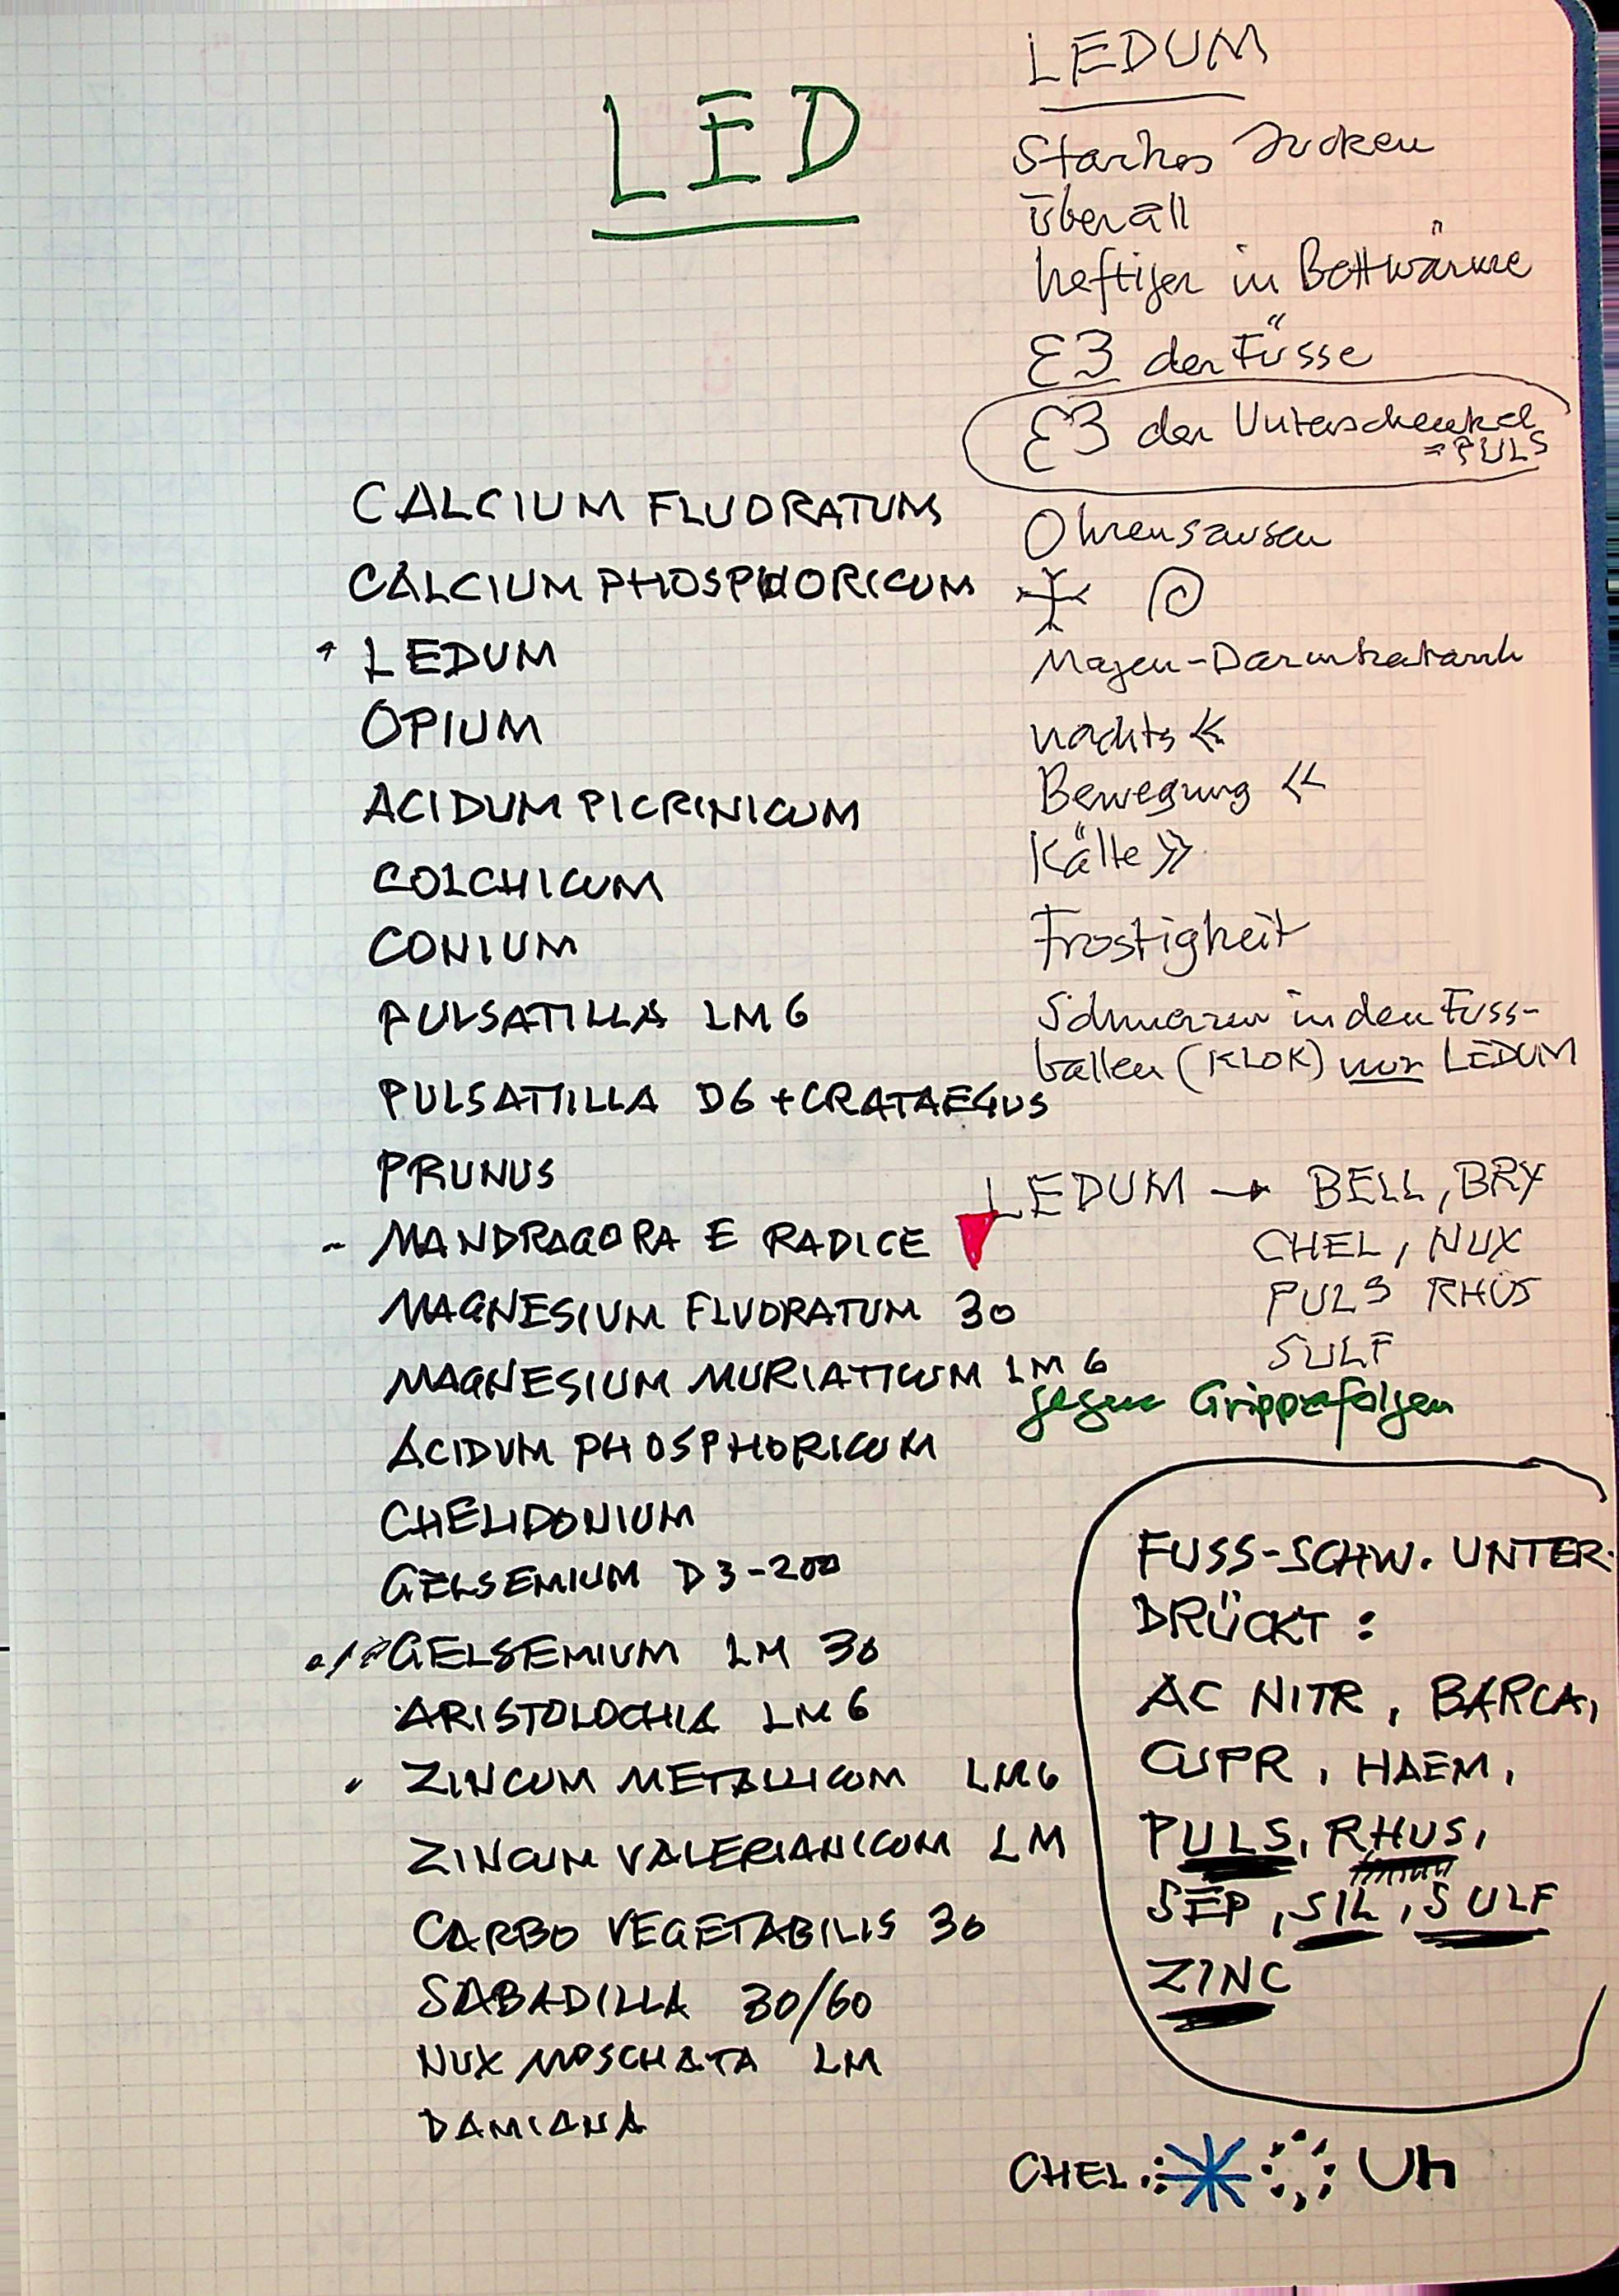 LED
CALCIUM FLUORATUM
CALCIUM PHOSPHORICUM
LEDUM
OPIUM
ACIDUM PICRINICUM
COLCHICUM
CONIUM
PULSATILLA LM 6
PULSATILLA D6 + CRATAEGUS
PRUNUS
- MANDRAGORA E RADICE
MAGNESIUM FLUORATUM 30
MAGNESIUM MURIATICUM LM 6
ACIDUM PHOSPHORICUM
CHELIDONIUM
GELSEMIUM D3-200
GELSEMIUM LM 30
ARISTOLOCHIA LM 6
ZINCUM METALLICUM LM6
ZINCUM VALERIANICUM LM
CARBO VEGETABILIS 30
SABADILLA 30/60
NUX MOSCHATA LM
DAMIANA
LEDUM
Starkes Jucken
überall
heftiger in Bettwärme
der Füsse
der Unterschenkel
=PULS
Ohrensausen
Magen-Darmkatarrh
nachts <
Bewegung <<
Kälte >>
Frostigkeit
Schmerzen in den Fuss-
ballen (KLOK) nur LEDUM
LEDUM → BELL, BRY
CHEL, NUX
PULS RHUS
SULF
gegen Grippefolgen
FUSS-SCHW. UNTER-
DRÜCKT:
AC NITR, BARCA,
CUPR, HAEM,
PULS, RHUS,
SEP, SIL, SULF
ZINC
CHEL Uh